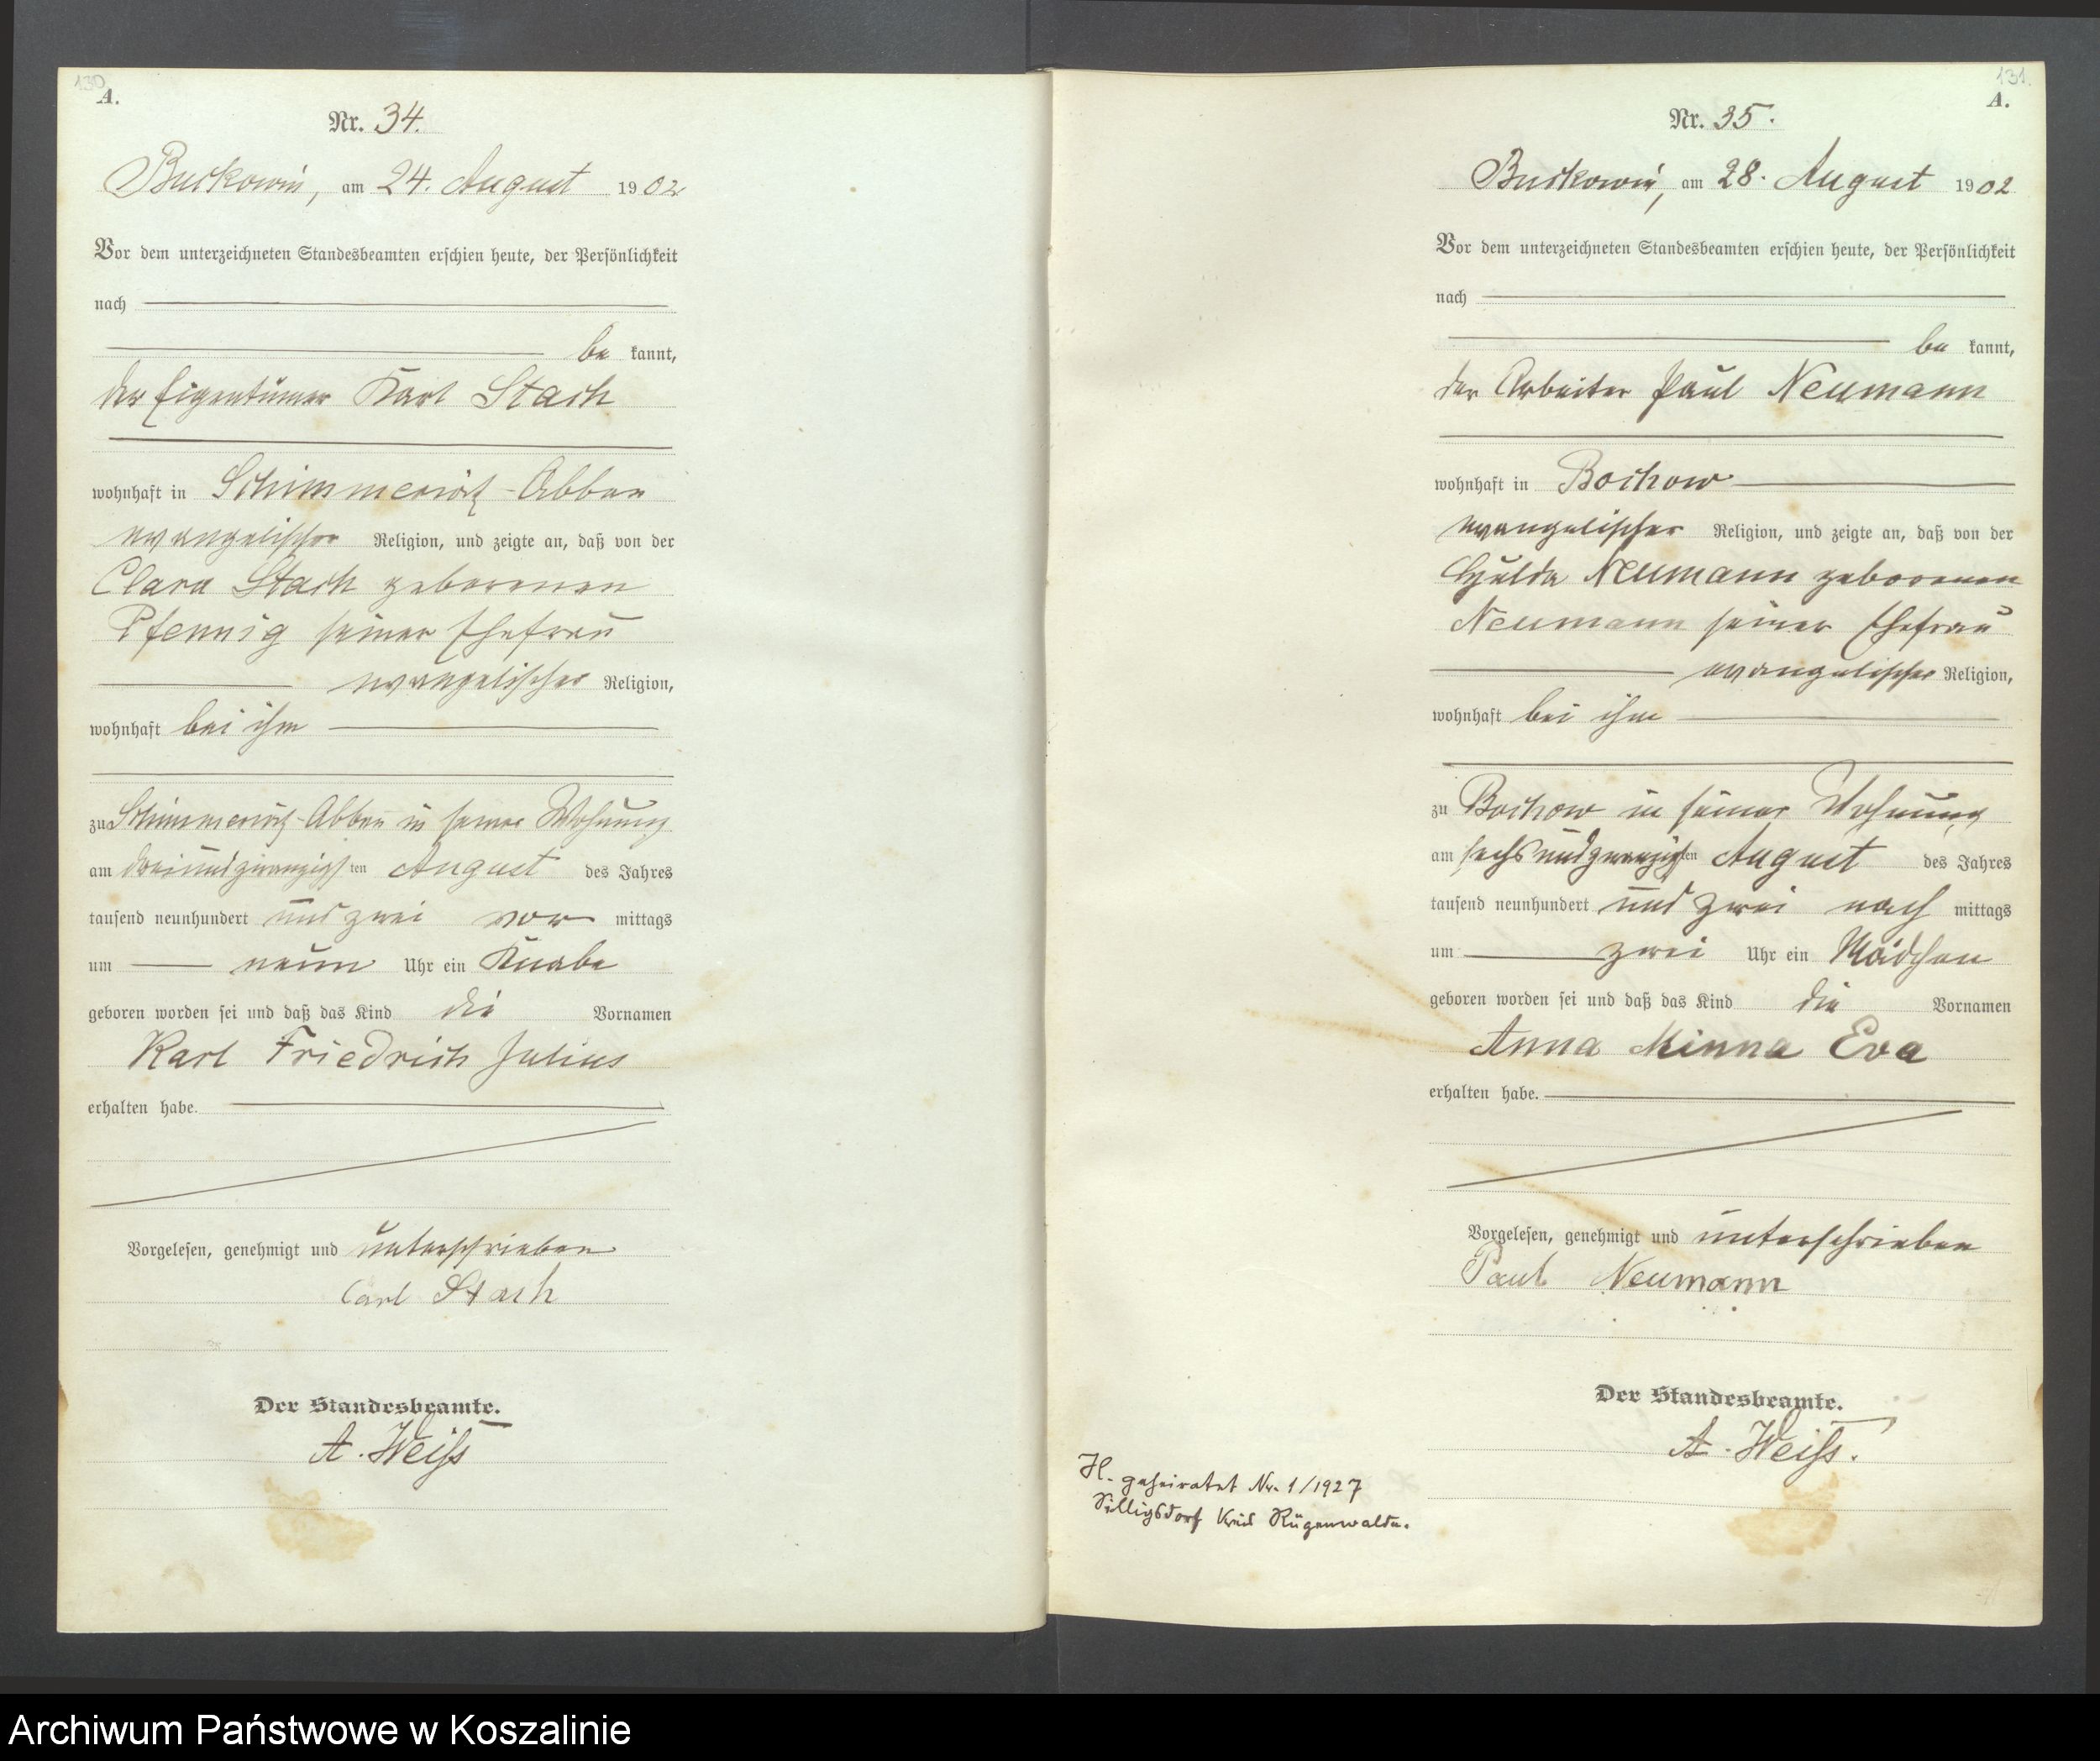 130
A.
Nr. 34.
Buckowin, am 24. August 1902
Vor dem unterzeichneten Standesbeamten erschien heute, der Persönlichkeit
nach
be kannt,
der Eigentümer Karl Stach
wohnhaft in Schimmerwitz-Abbau
evangelischer Religion, und zeigte an, daß von der
Clara Stach geborenen
Pfennig seiner Ehefrau
evangelischer Religion,
wohnhaft bei ihm
zu Schimmerwitz-Abbau in seiner Wohnung
am dreiundzwanzigsten August des Jahres
tausend neunhundert und zwei vor mittags
um neun Uhr ein Knabe
geboren worden sei und daß das Kind die Vornamen
Karl Friedrich Julius
erhalten habe.
Vorgelesen, genehmigt und unterschrieben
Carl Stach
Der Standesbeamte.
A. Weiß
131.
A.
Nr. 35.
Buckowin, am 28. August 1902
Vor dem unterzeichneten Standesbeamten erschien heute, der Persönlichkeit
nach
be kannt,
der Arbeiter Paul Neumann
wohnhaft in Bochow
evangelischer Religion, und zeigte an, daß von der
Hulda Neumann geborenen
Neumann seiner Ehefrau
evangelischer Religion,
wohnhaft bei ihm
zu Bochow in seiner Wohnung
am sechsundzwanzigsten August des Jahres
tausend neunhundert und zwei nach mittags
um zwei Uhr ein Mädchen
geboren worden sei und daß das Kind die Vornamen
Anna Minna Eva
erhalten habe.
Vorgelesen, genehmigt und unterschrieben
Paul Neumann
Der Standesbeamte.
A. Weiß.
H. geheiratet Nr. 1/1927
Kreis Rügenwalde.
Archiwum Państwowe w Koszalinie